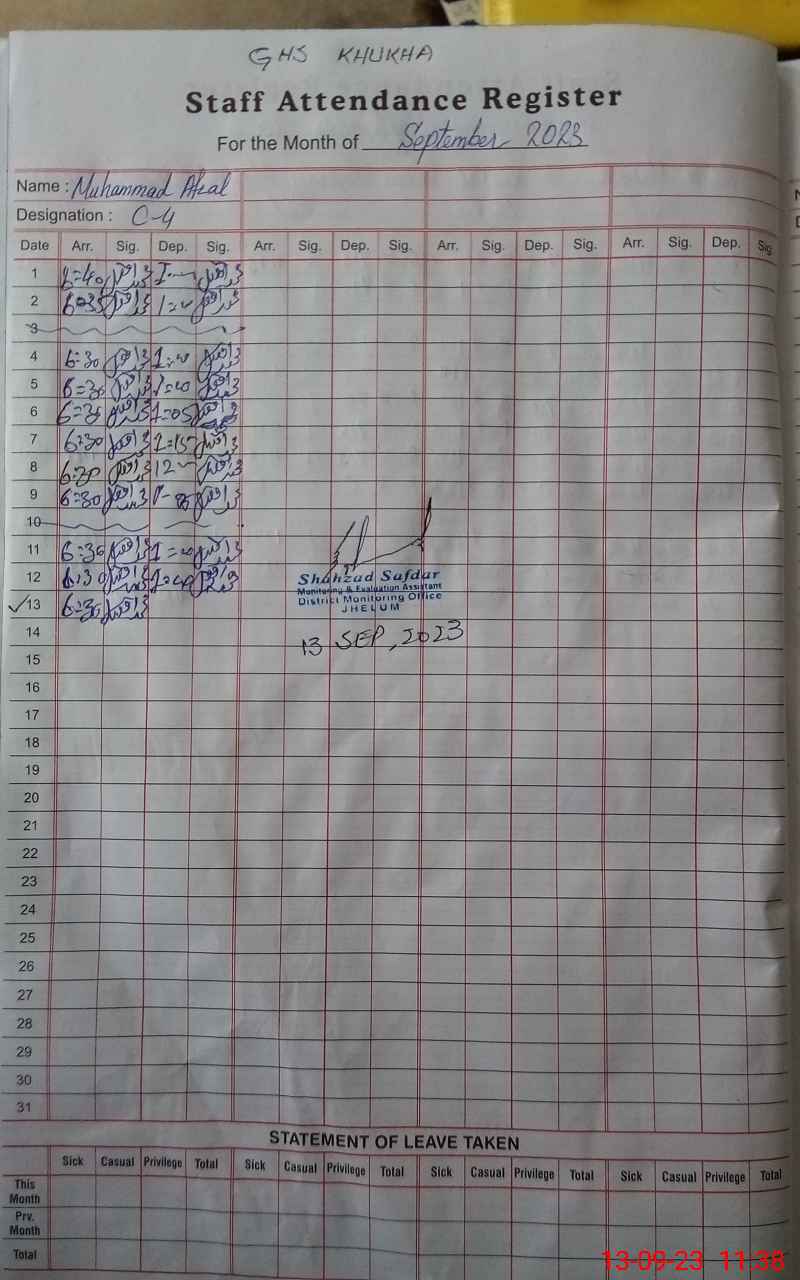 GHS KHUKHA
Staff Attendance Register
For the Month of September 2023
Name : Muhammad Afzal
Designation : C-4
Date Arr. Sig. Dep. Sig. Arr. Sig. Dep. Sig. Arr. Sig. Dep. Sig. Arr. Sig. Dep. Sig.
1 6=40
2 6=35
3
4 6:30
5 6=30
6 6=30 1=05
7 6:30 1=15
8 6:30 12
9 6:30
10
11 6:30 1=00
12 6:30 1=00
13 6=30
Shahzad Safdar
Monitoring & Evaluation Assistant
District Monitoring Office
JHELUM
14
13 SEP, 2023
15
16
17
18
19
20
21
22
23
24
25
26
27
28
29
30
31
STATEMENT OF LEAVE TAKEN
Sick Casual Privilege Total Sick Casual Privilege Total Sick Casual Privilege Total Sick Casual Privilege Total
This Month
Prv. Month
Total
13-09-23 11:38